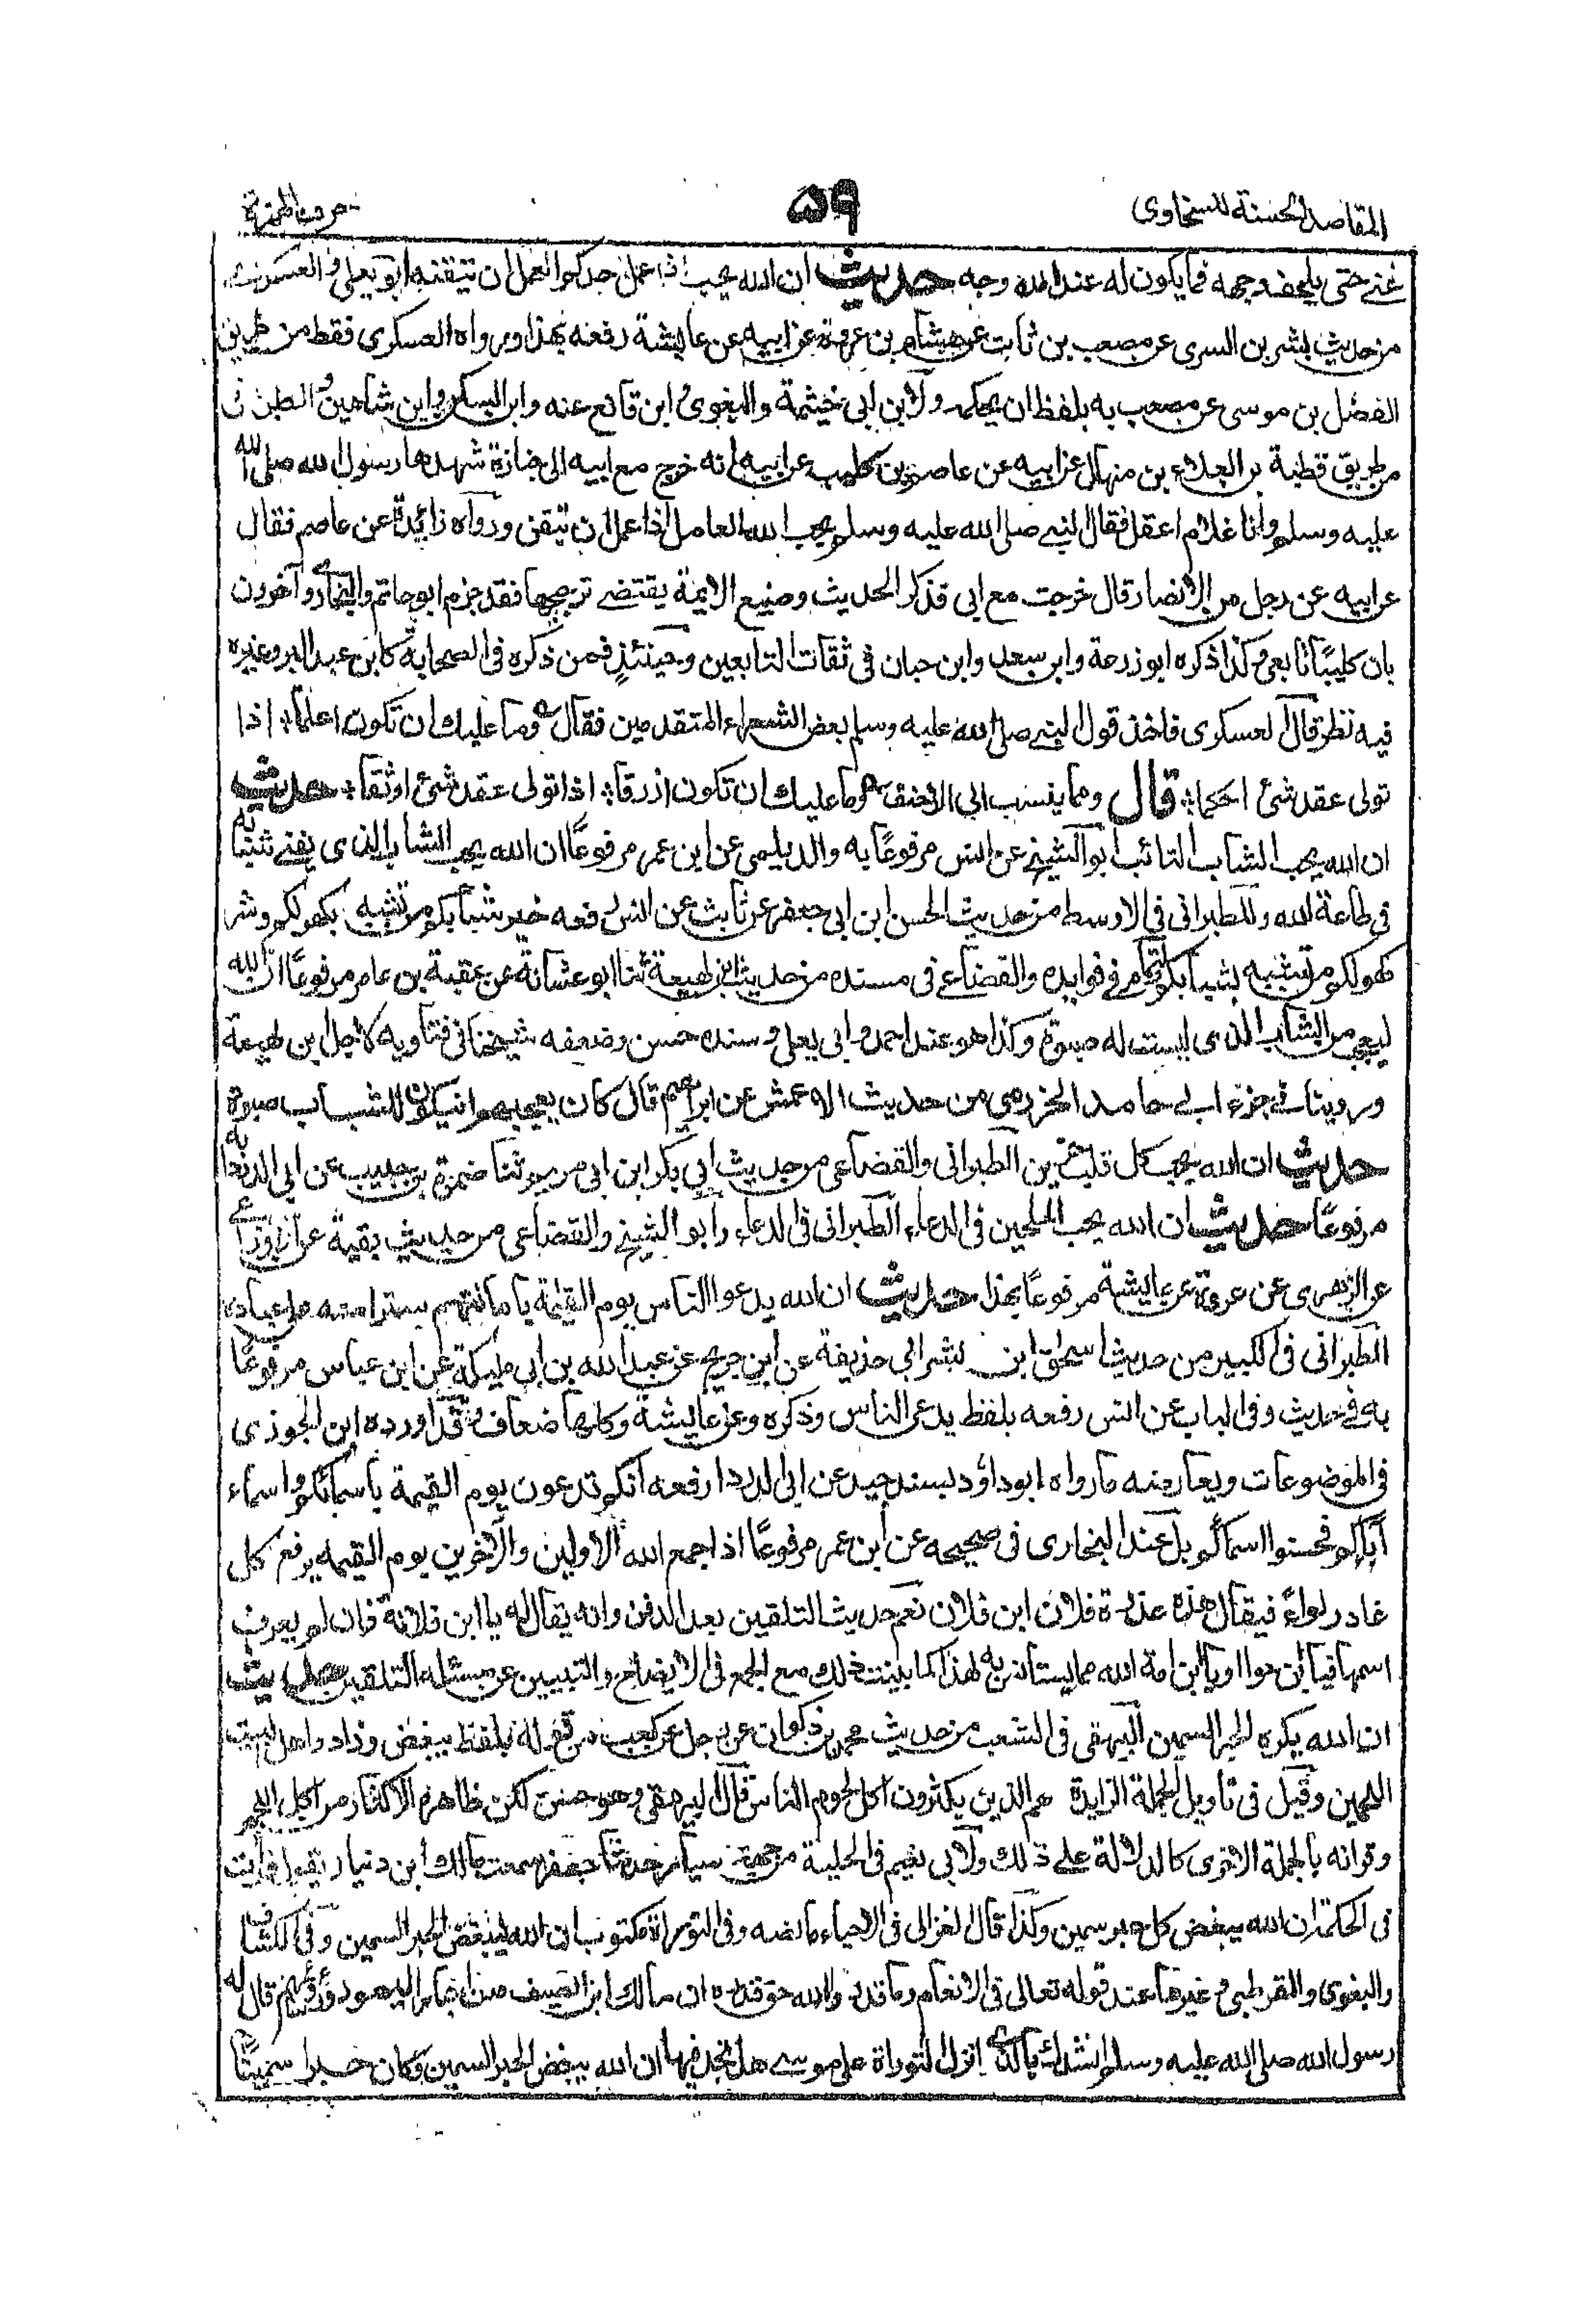 المقاصد الحسنة للسخاوى ۵۹ حرف الهمزة
غنى حتى يلحف وجهه فما يكون له عند الله وجه حديث ان الله يحب اذا عمل احدكم العمل ان يتقنه ابو يعلى والعسكرى
من حديث بشر بن السرى عن مصعب بن ثابت عن هشام بن عروة عن ابيه عن عايشة رفعه بهذا ورواه العسكرى فقط من طريق
الفضل بن موسى عن مصعب به بلفظ ان يحكمه ولابن ابى خيثمة والبغوى وابن قانع عنه وابن السكن وابن شاهين والطبرانى
من طريق قطبة بن العلاء بن منهال عن ابيه عن عاصم بن كليب عن ابيه انه خرج مع ابيه الى جنازة شهدها رسول الله صلى الله
عليه وسلم وانا غلام اعقل فقال النبى صلى الله عليه وسلم يحب الله العامل اذا عمل ان يتقن ورواه زائدة عن عاصم فقال
عن ابيه عن رجل من الانصار قال خرجت مع ابى فذكر الحديث وصنيع الايمة يقتضى ترجيحها فقد جزم ابو حاتم والبخارى وآخرون
بان كليبًا تابعى وكذا ذكره ابو زرعة وابن سعد وابن حبان فى ثقات التابعين وحينئذٍ فمن ذكره فى الصحابة كابن عبد البر وغيره
فيه نظر قال العسكرى فاخذ قول النبى صلى الله عليه وسلم بعض الشعراء المتقدمين فقال وما عليك ان تكون اعلما اذا
تولى عقد شئ احكما قال ومما ينسب الى الاحنف وما عليك ان تكون ازرقا اذا تولى عقد شئ اوثقا حديث
ان الله يحب الشاب التائب ابو الشيخ عن انس مرفوعًا به والديلمى عن ابن عمر مرفوعًا ان الله يحب الشاب الذى يفنى شبابه
فى طاعة الله وللطبرانى فى الاوسط من حديث الحسن ابن ابى جعفر عن ثابت عن انس رفعه خير شبابكم من تشبه بكهولكم وشر
كهولكم من تشبه بشبابكم ولتمام فى فوايده والقضاعى فى مسنده من حديث ابن لهيعة ثنا ابو عشانة عن عقبة بن عامر مرفوعًا ان الله
ليعجب من الشاب الذى ليست له صبوة وكذا هو عند احمد وابى يعلى وسنده حسن وضعفه شيخنا فى فتاويه لاجل ابن لهيعة
وروينا فى جزء ابى حامد الحضرمى من حديث الاعمش عن ابراهيم قال كان يعجبهم ان يكون للشباب صبوة
حديث ان الله يحب كل قلب حزين الطبرانى والقضاعى من حديث ابى بكر ابن ابى مريم ثنا ضمرة بن حبيب عن ابى الدرداء به
مرفوعًا حديث ان الله يحب الملحين فى الدعاء الطبرانى فى الدعاء وابو الشيخ والقضاعى من حديث بقية عن الاوزاعى
عن الزهرى عن عروة عن عايشة مرفوعًا بهذا حديث ان الله يدعوا الناس يوم القيمة بامهاتهم سترا منه على عباده
الطبرانى فى الكبير من حديث اسحاق ابن بشر ابى حذيفة عن ابن جريج عن عبد الله بن ابى مليكة عن ابن عباس مرفوعًا
به فى حديث وفى الباب عن انس رفعه بلفظ يدعى الناس وذكره وعن عايشة وكلها ضعاف وقد اورده ابن الجوزى
فى الموضوعات ويعارضه ما رواه ابو داؤد بسند جيد عن ابى الدردا رفعه انكم تدعون يوم القيمة باسمائكم واسماء
آبائكم فحسنوا اسمائكم بل عند البخارى فى صحيحه عن ابن عمر مرفوعًا اذا جمع الله الاولين والآخرين يوم القيمه يرفع كل
غادر لواءً فيقال هذه غدرة فلان ابن فلان نعم حديث التلقين بعد الدفن وانه يقال له يا ابن فلانة فان لم يعرف
اسمها فيا ابن حوا او يا ابن امة الله مما يستانس به لهذا كما بينت ذلك مع الجمع فى الايضاح والتبيين عن مسئلة التلقين حديث
ان الله يكره الحبر السمين البيهقى فى الشعب من حديث محمد بن ذكوان عن رجل عن كعب من قوله بلفظ يبغض وزاد واهل البيت
اللحمين وقيل فى تاويل الجملة الزايدة هم الذين يكثرون اكل لحوم الناس قال البيهقى وهو حسن لكن ظاهره الاكثار من اكل اللحم
وقرانه بالجملة الاخرى كالدلالة على ذلك ولابى نعيم فى الحلية من جهة سيار حدثنا جعفر سمعت مالك ابن دنيار يقول قرأت
فى الحكمة ان الله يبغض كل حبر سمين وكذا قال الغزالى فى الاحياء ما نصه وفى التوراة مكتوب ان الله ليبغض الحبر السمين وفى الكشاف
والبغوى والقرطبى وغيرها عند قوله تعالى فى الانعام وما قدروا الله حق قدره ان مالك ابن الصيف من احبار اليهود ورؤسائهم قال له
رسول الله صلى الله عليه وسلم انشدك بالذى انزل التوراة على موسى هل تجد فيها ان الله يبغض الحبر السمين وكان حبرا سمينًا